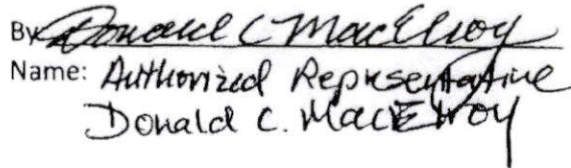 By Donald C MacElroy
Name: Authorized Representative
Donald C. MacElroy